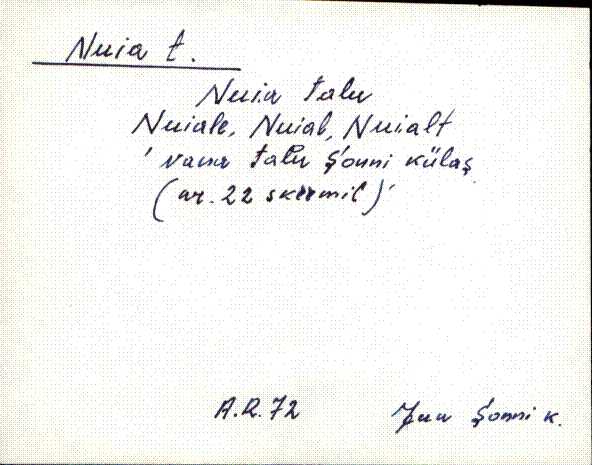 Nuia t.
Nuia talu
Nuiale, Nuial, Nuialt
' vana talu Şonni külaş
(nr. 22 skeemil)'
A.R. 72 Juu Şonni k.